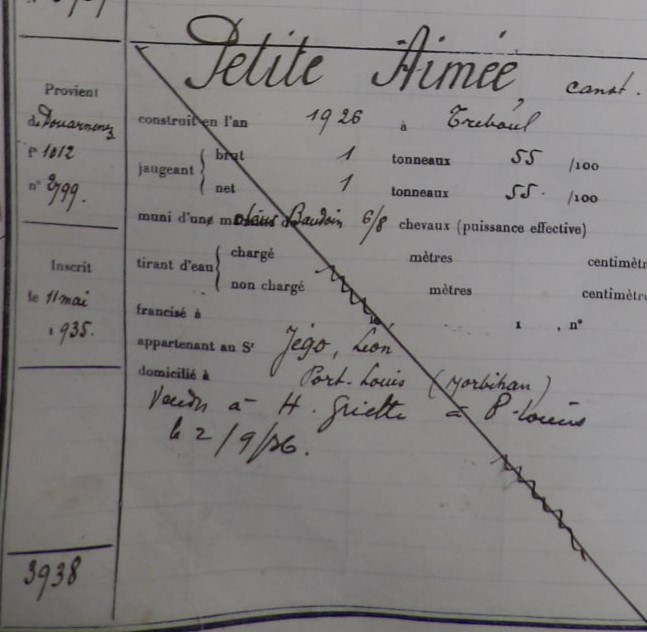 Petite Aimée, canot.
Provient
de Douarnenez
f° 1012
n° 2799.
construit en l'an 1926 à Treboul
jaugeant
brut 1 tonneaux 55 /100
net 1 tonneaux 55. /100
muni d'une Baudoin 6/8 chevaux (puissance effective)
Inscrit
le 11 mai
1935.
tirant d'eau
chargé mètres centimètr
non chargé mètres centimètre
francisé à le 1 , n°
appartenant au Sr Jégo, Léon
domicilié à Port-Louis (Morbihan)
Vendu à H. Griette à P-Louis
le 2/9/36.
3938